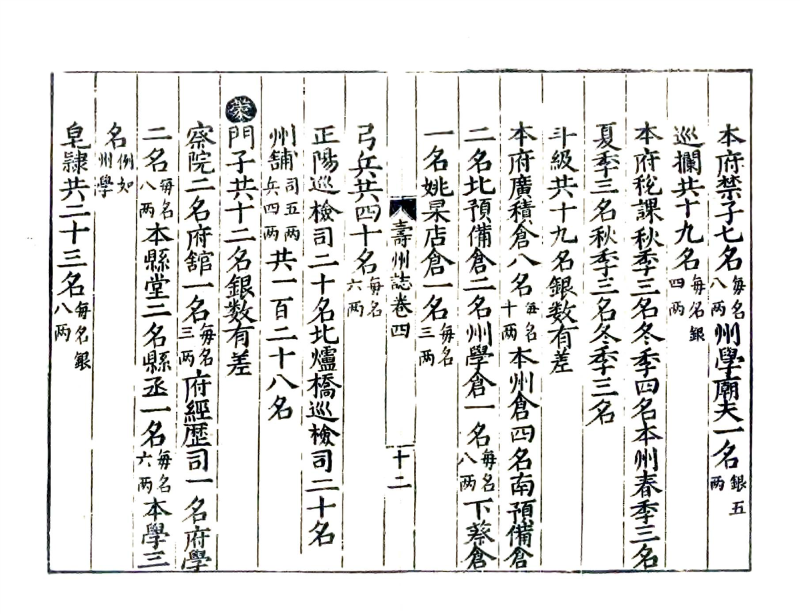 本府禁子七名每名八两州學廟夫一名銀五两
巡攔共十九名每名銀四两
本府稅課秋季三名冬季四名本州春季三名
夏季三名秋季三名冬季三名
斗級共十九名銀数有差
本府廣積倉八名每名十两本州倉四名南預備倉
二名北預備倉二名州學倉一名每名八两下蔡倉
一名姚杲店倉一名每名三两
壽州誌卷四
十二
弓兵共四十名每名六两
正陽巡檢司二十名北爐橋巡檢司二十名
州舖司五两兵四两共一百二十八名
蒙門子共十二名銀数有差
察院二名府舘一名每名三两府經歷司一名府學
二名每名八两本縣堂二名縣丞一名每名六两本學三
名例如州學
皂隸共二十三名每名銀八两